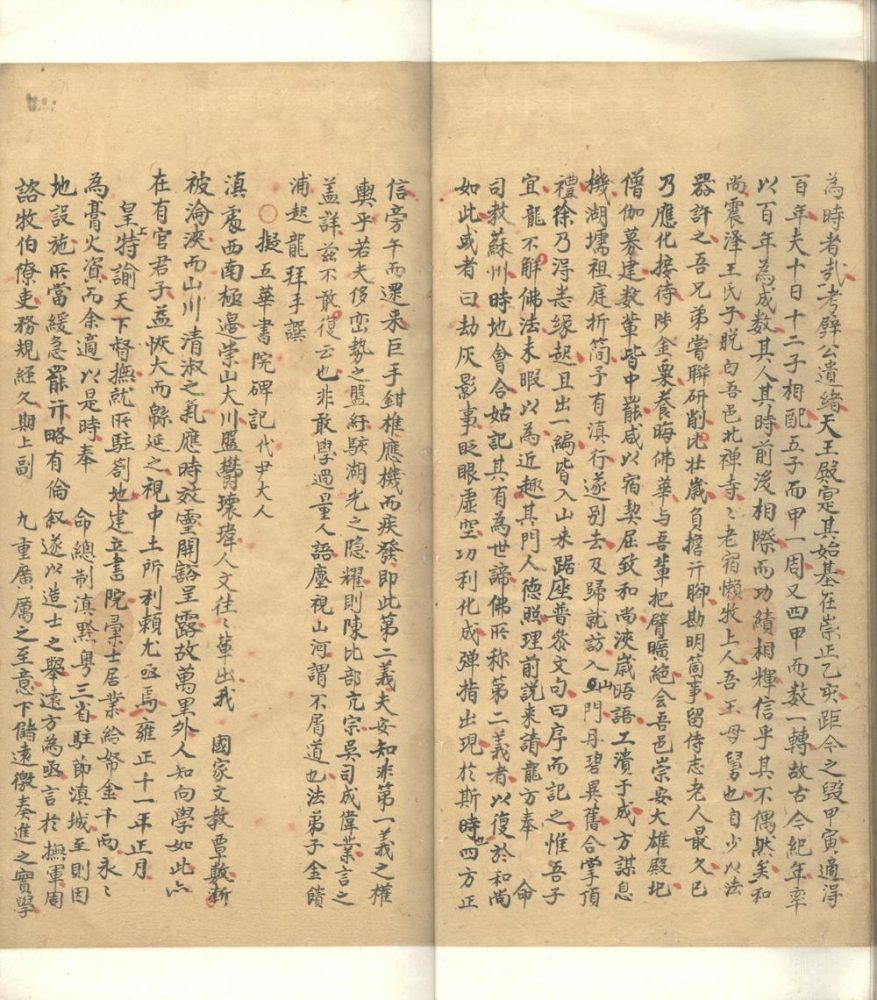 為時者哉考辟公遺緒天王殿寔其始基在崇正乙亥距今之毀甲寅適得
百年夫十日十二子相配五子而甲一周又四甲而數一轉故古今紀年率
以百年為成數其人其時前後相際而功績相輝信乎其不偶然矣和
尚震澤王氏子脫白吾邑北禪寺〻老宿懶牧上人吾王母舅也自少以法
器許之吾兄弟嘗聯研削比壯歲負擔行腳勘明箇事留侍志老人最久已
乃應化接待陟金粟養晦佛華与吾輩把臂曠絕會吾邑崇安大雄殿圮
僧伽募建敦輩皆中罷咸以宿契屈致和尚浹歲晤語工潰于成方謀息
機湖壖祖庭折簡予有滇行遂別去及歸就訪入山門丹碧異舊合掌頂
禮徐乃淂悉緣起且出一編皆入山来踞座普叅文句曰序而記之惟吾子
宜龍不解佛法未暇以為近趣其門人德照理前說来請龍方奉　命
司教蘇州時地會合姑記其有為世諦佛所称第二義者以復於和尚
如此或者曰劫灰影事眨眼虛空功利化成弹指出現於斯時也四方正
信旁午而還来巨手鉗椎應機而疾發即此第二義夫安知非第一義之權
輿乎若夫侈巒勢之盤紆駭湖光之隐耀則陳比部亢宗吳司成偉業言之
盖詳茲不敢復云也非敢學過量人語塵視山河謂不屑道也法弟子金饋
浦起龍拜手譔
○擬五華書院碑記代尹大人
滇處西南極邊崇山大川盤鬱瓌瑋人文往〻輩出我　國家文教覃敷漸
被淪浹而山川清淑之氣應時效靈開豁呈露故萬里外人知向學如此六
在有官君子益恢大而緜延之視中土所利賴尤亟焉雍正十一年正月
皇上特諭天下督撫就所駐劄地建立書院彙士居業給帑金千兩永〻
為膏火資而余適以是時奉　命總制滇黔粤三省駐節滇城至則因
地設施所當緩急罷行略有倫叙遂以造士之舉遠方為亟言於撫軍周
諮牧伯僚吏務規經久期上副　九重廣厲之至意下儲遠徼奏進之實學